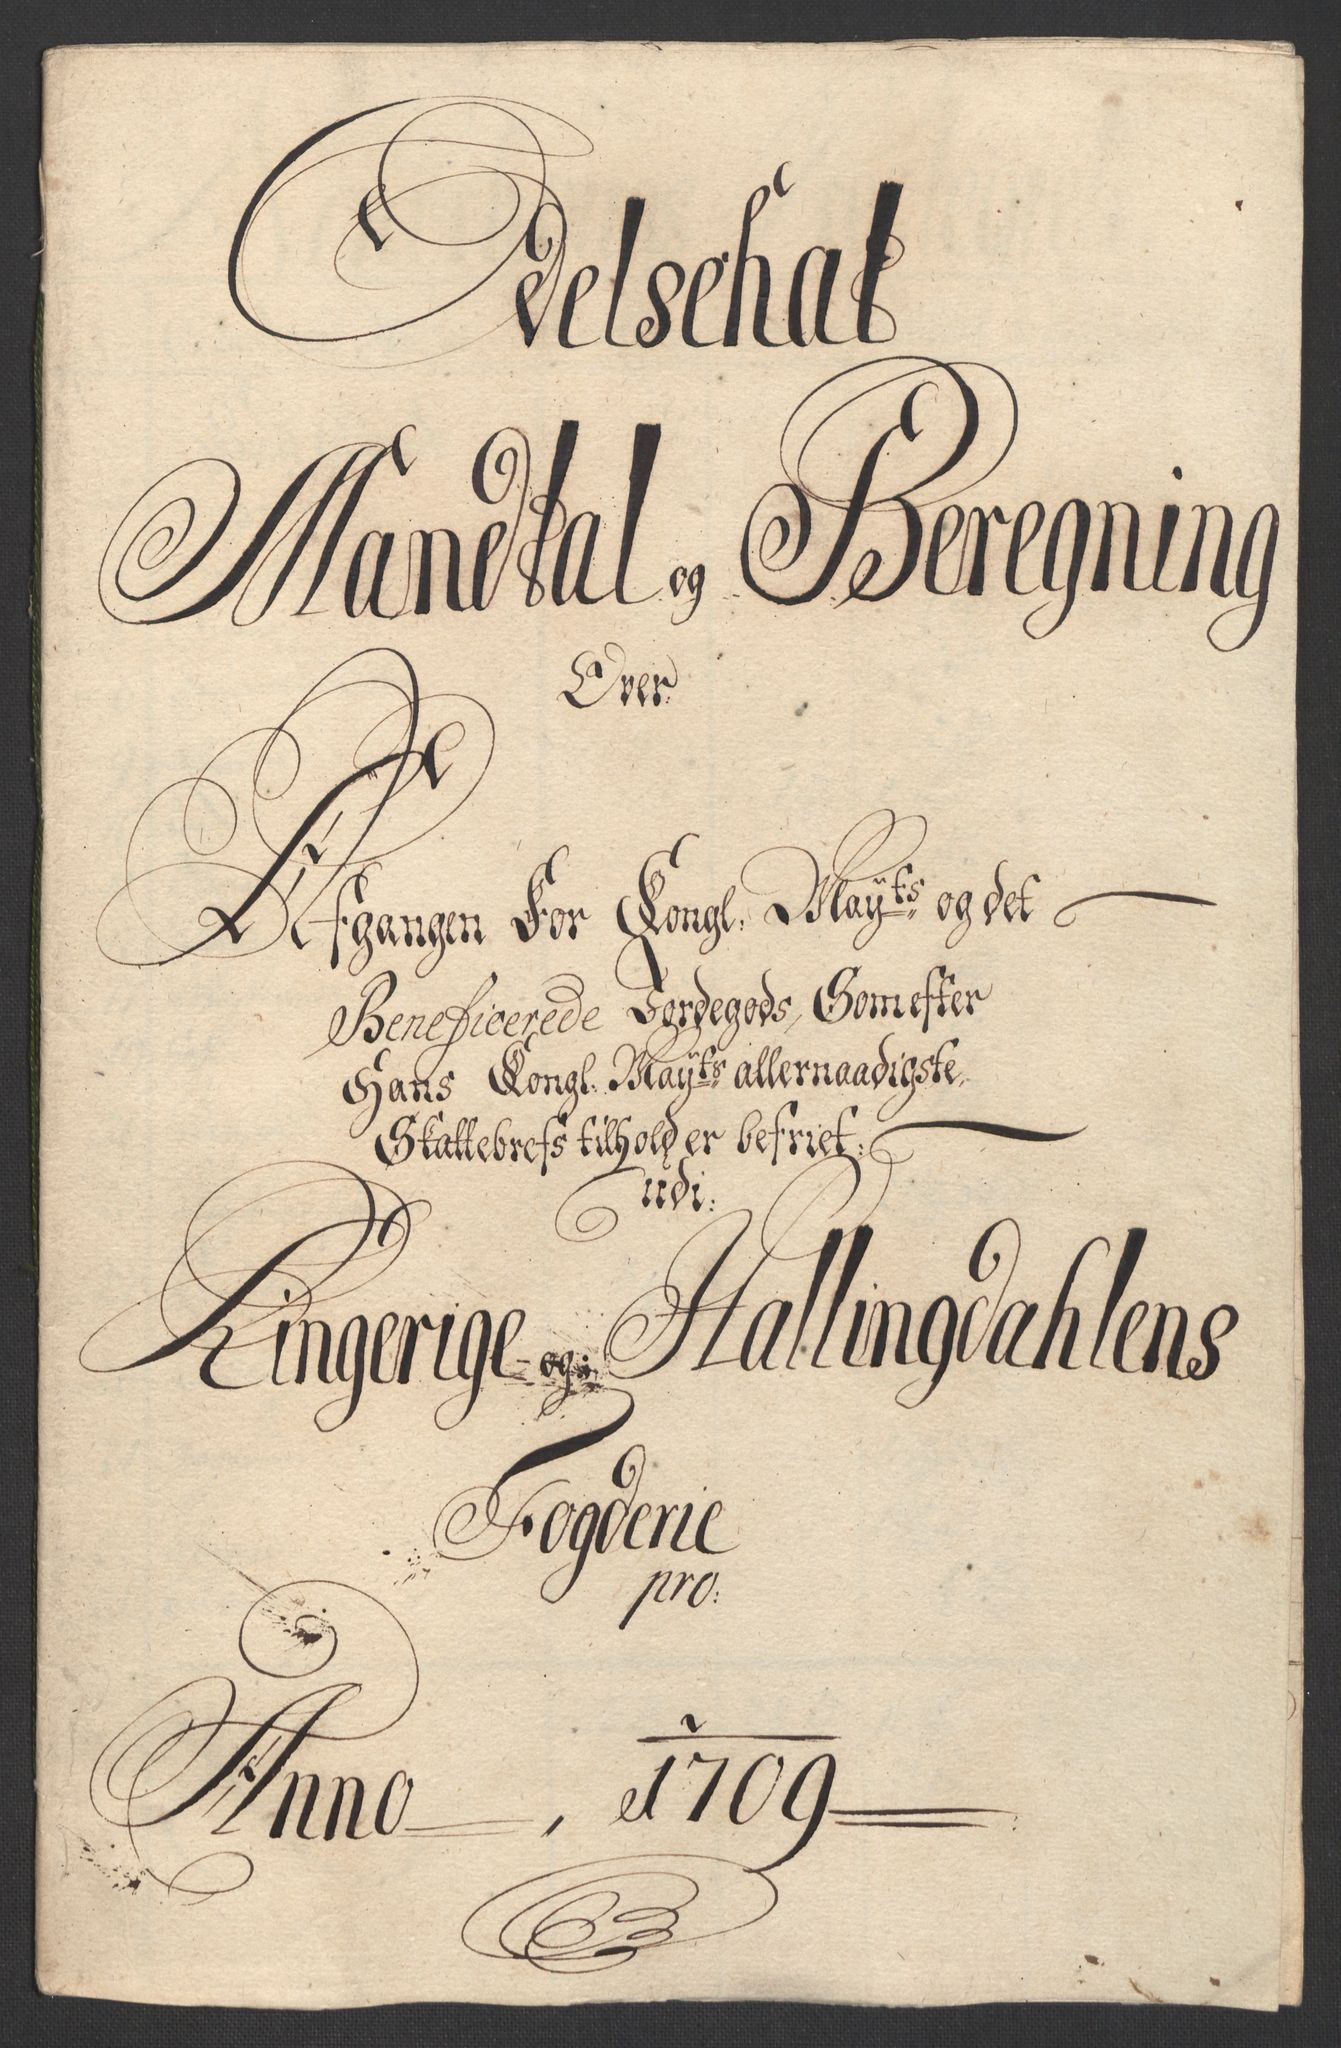 Odelschat
Mandtal og Beregning
Over
Afgangen For Kongl. Mayts og det
Beneficerede Jordegods, Som efter
Hans Kongl. Mayts allernaadigste
Skattebrefs tilhold er befriet.
udi:
Ringerige og Hallingdahlens
Fogderie
pro:
Anno, 1709